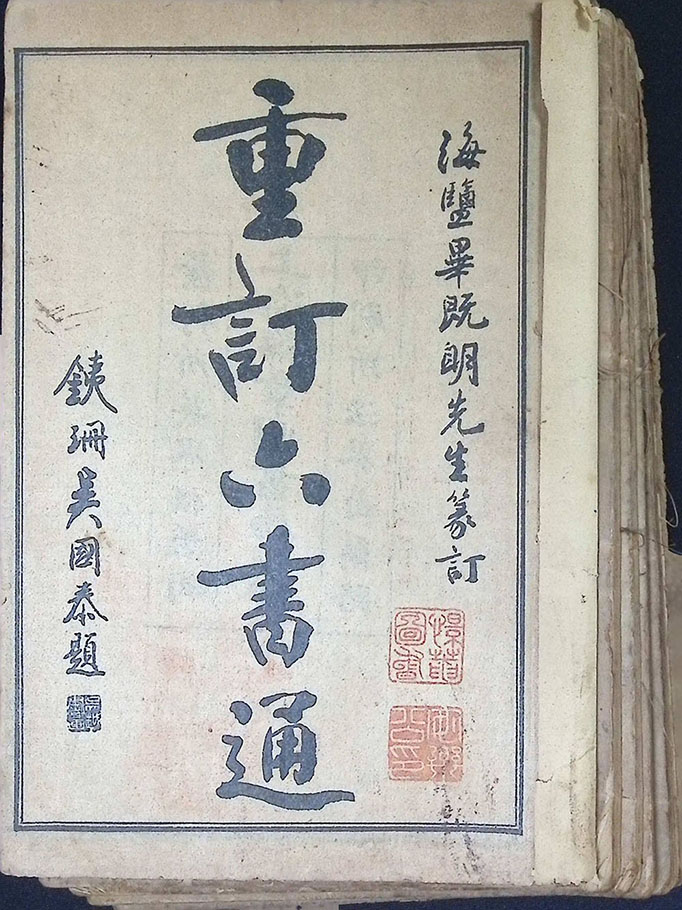 海鹽畢既明先生篆訂
重訂六書通
銕珊吳國泰題